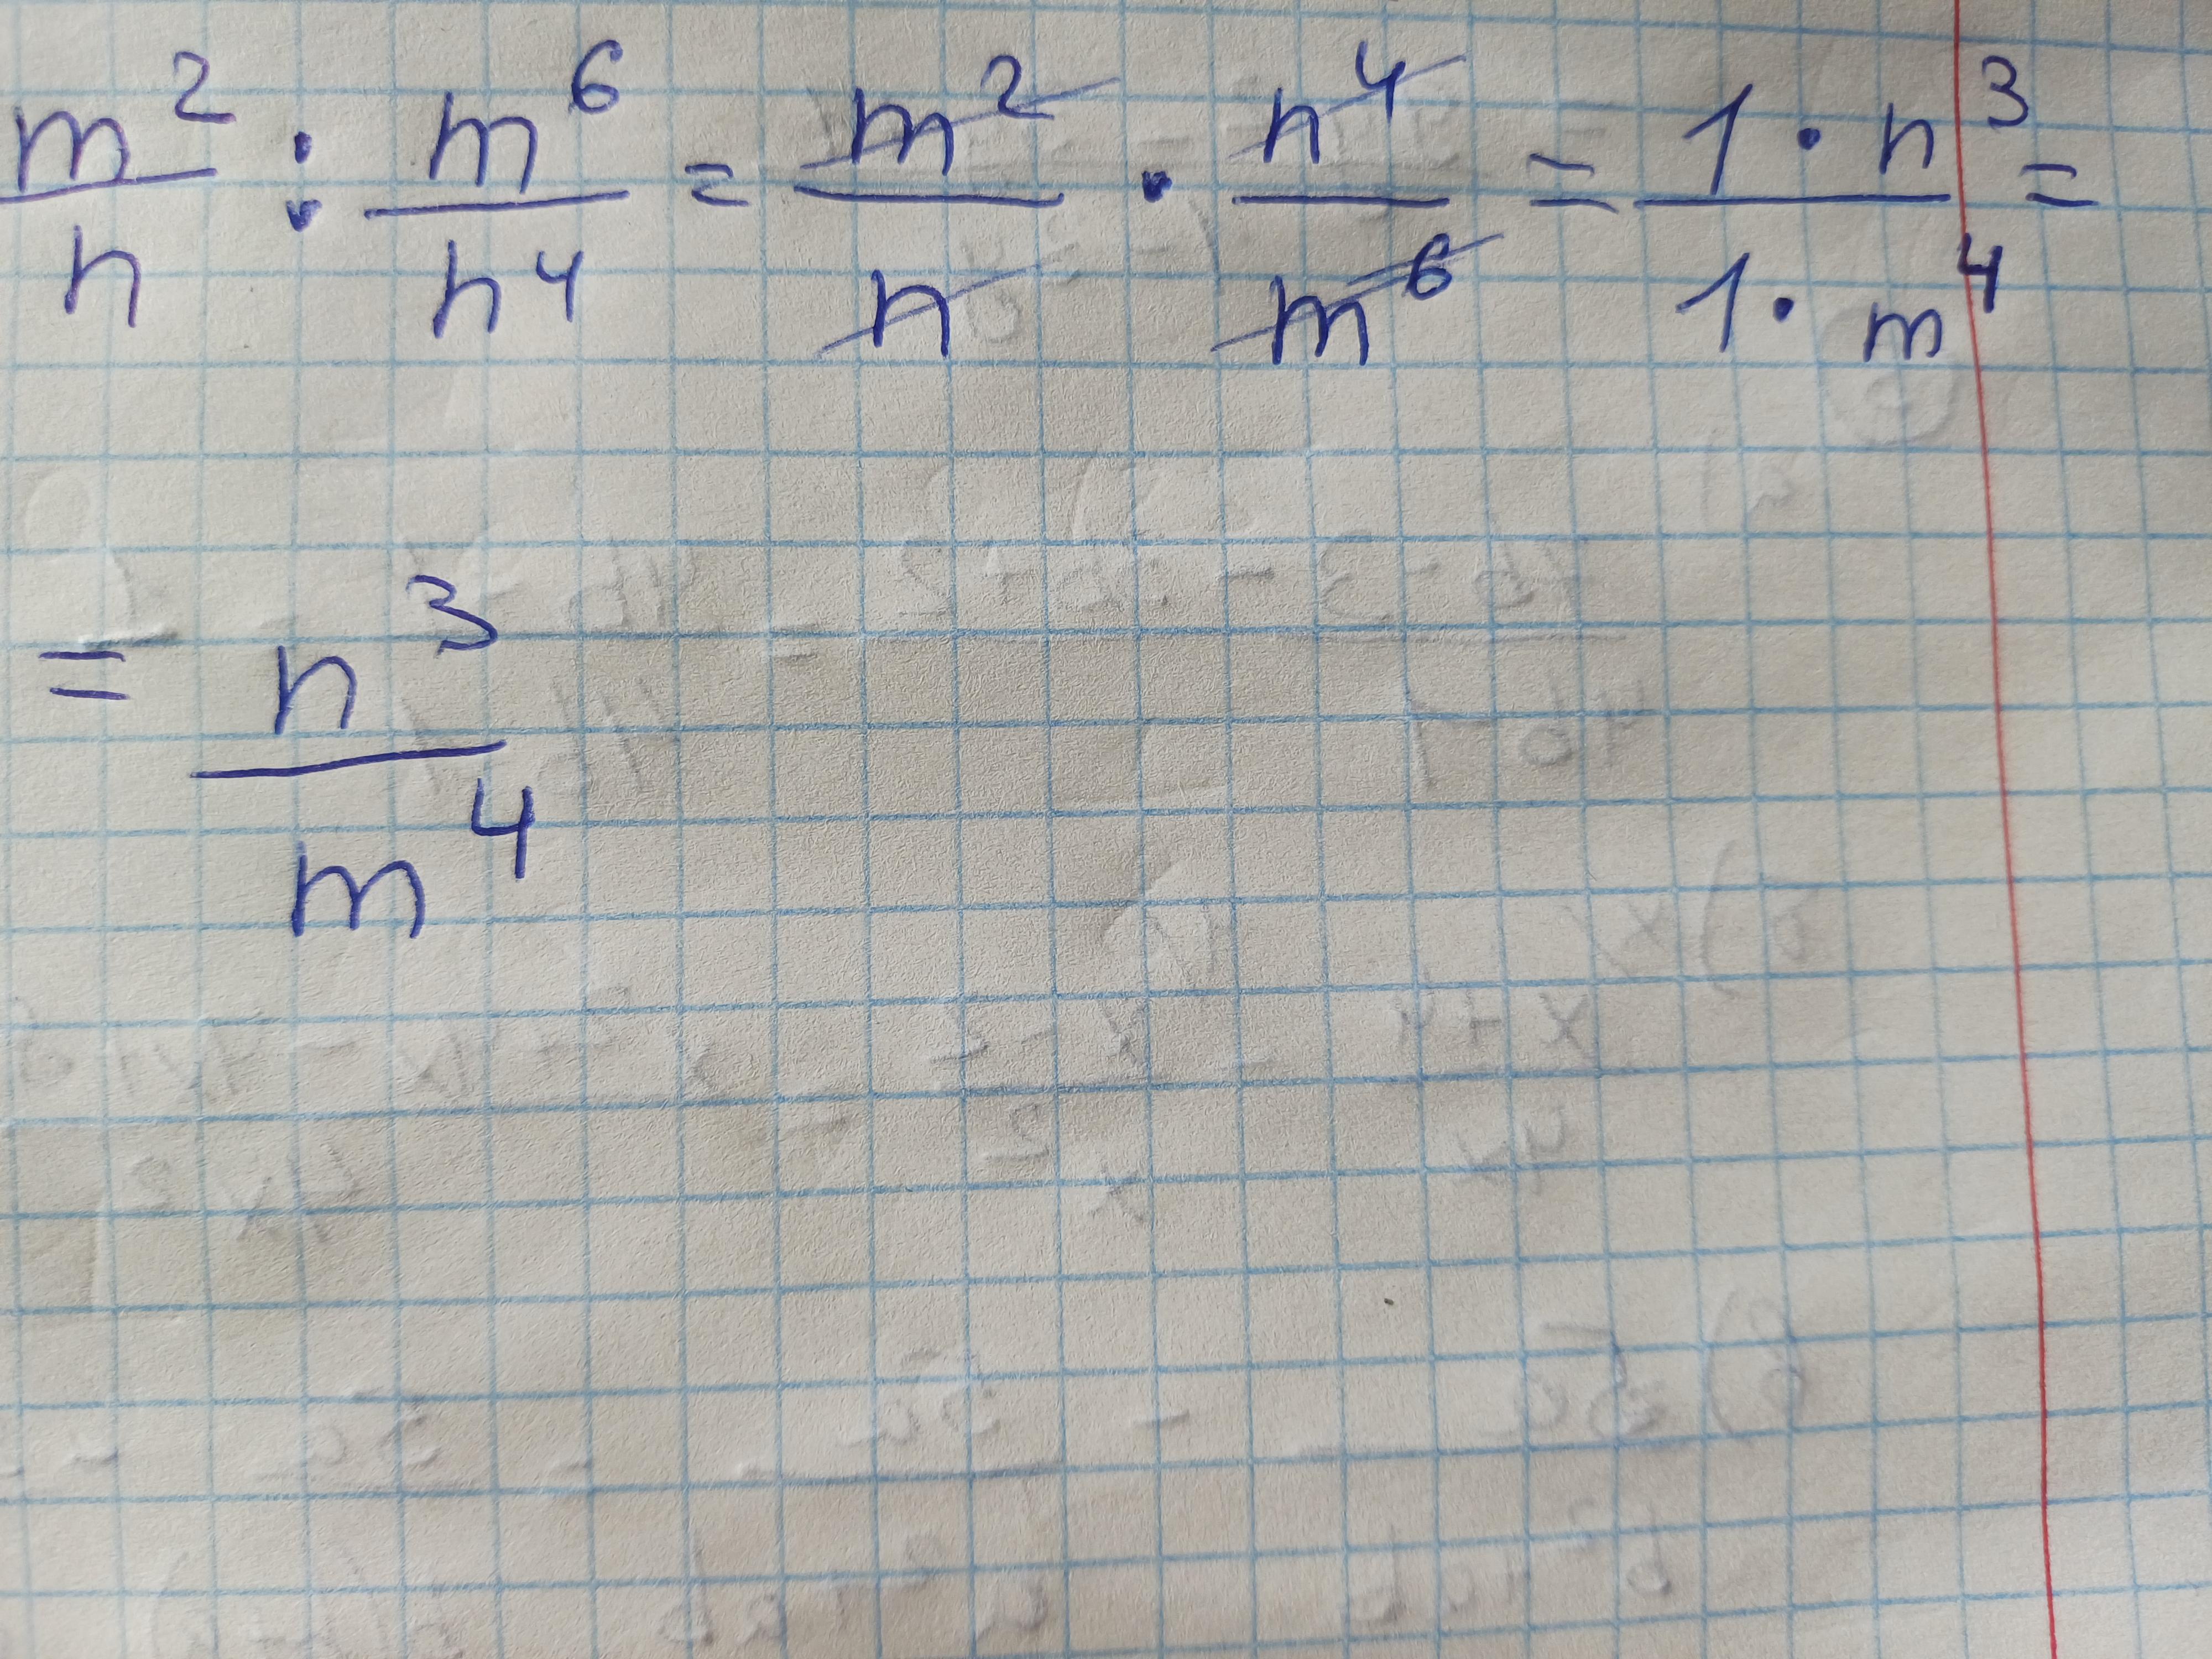 m²/n : m⁶/n⁴ = m²/n · n⁴/m⁶ = 1 · n³/1 · m⁴ =
= n³/m⁴